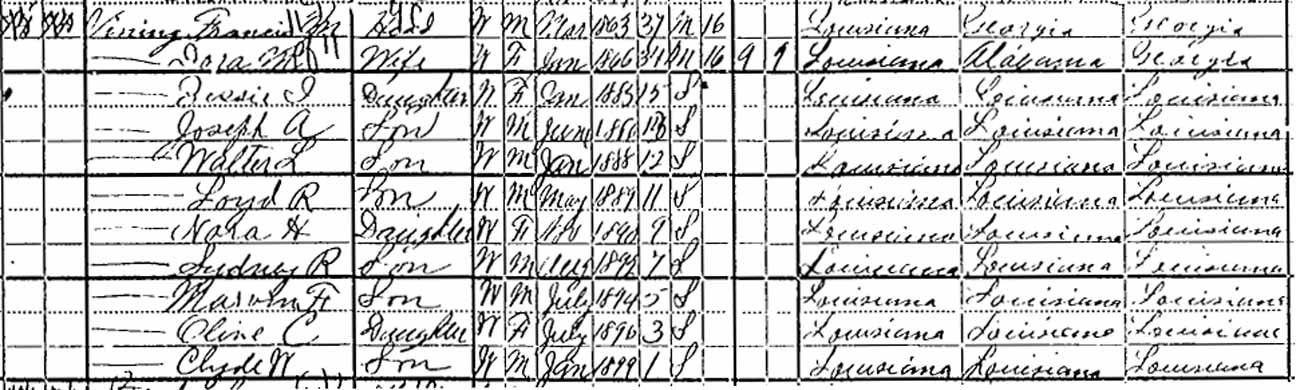 Vining Francis M Head W M Mar 1863 37 M 16 Louisiana Georgia Georgia
Dora M Wife W F Jan 1866 34 M 16 9 9 Louisiana Alabama Georgia
Jessie I Daughter W F Jan 1885 15 S Louisiana Louisiana Louisiana
Joseph A Son W M June 1886 S Louisiana Louisiana Louisiana
Walter L Son W M Jan 1888 12 S Louisiana Louisiana Louisiana
Loyd R Son W M May 1889 11 S Louisiana Louisiana Louisiana
Nora H Daughter W F 1890 9 S Louisiana Louisiana Louisiana
Sydney R Son W M Aug 1892 7 S Louisiana Louisiana Louisiana
Marvin F Son W M July 1894 5 S Louisiana Louisiana Louisiana
Cline C Daughter W F July 1896 3 S Louisiana Louisiana Louisiana
Clyde W Son W M Jan 1899 1 S Louisiana Louisiana Louisiana